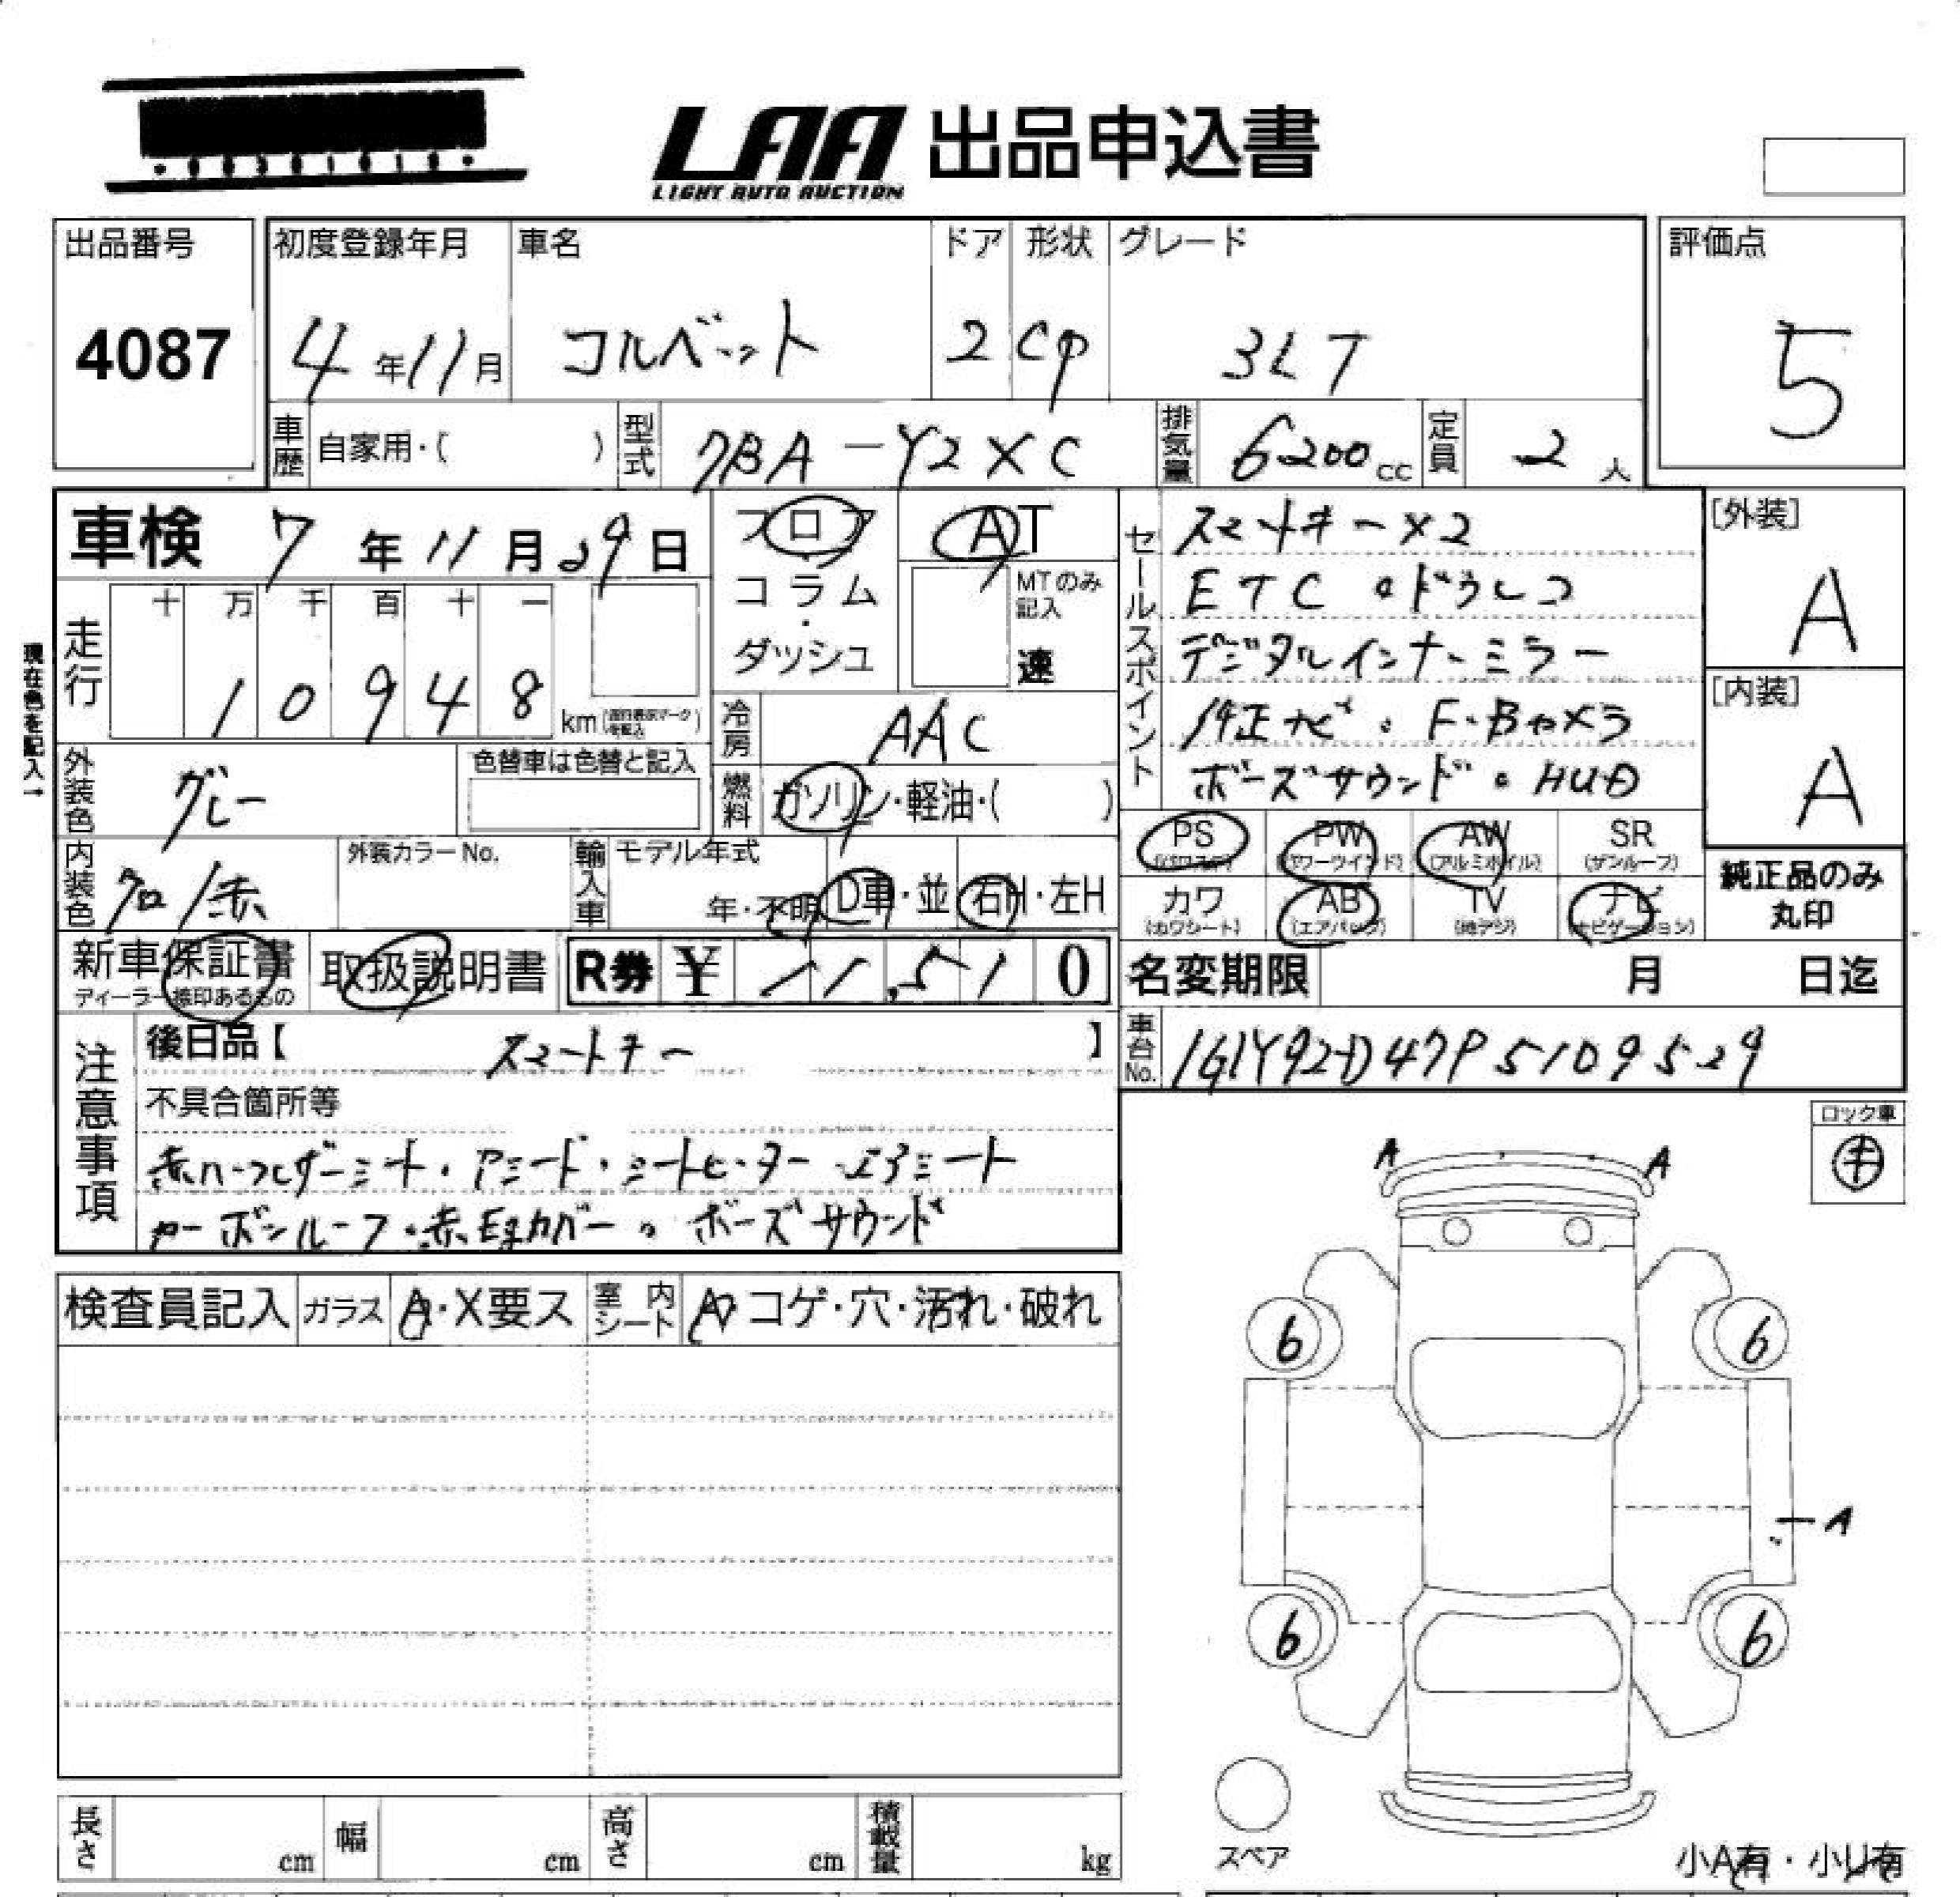 LAA 出品申込書
LIGHT AUTO AUCTION
出品番号
4087
初度登録年月
4年11月
車名
コルベット
ドア
2
形状
cp
グレード
3LT
評価点
5
車歴 自家用・( )
型式 7BA-Y2XC
排気量 6200cc
定員 2人
車検 7年11月29日
フロア・コラム・ダッシュ
AT
MTのみ記入
速
現在色を記入→
走行
十 万 千 百 十 一
1 0 9 4 8
km
冷房 AAC
外装色 グレー
色替車は色替と記入
燃料 ガソリン・軽油・( )
内装色 クロ/赤
外装カラーNo.
輸入車 モデル年式
年・不明 D車・並 右H・左H
新車保証書
ディーラー捺印あるもの
取扱説明書
R券 ¥11,510
セールスポイント
スマートキー×2
ETC・ドラレコ
デジタルインナーミラー
純正ナビ・F・Bカメラ
ボーズサウンド・HUD
[外装]
A
[内装]
A
PS
(パワステ)
PW
(パワーウインド)
AW
(アルミホイル)
SR
(サンルーフ)
カワ
(カワシート)
AB
(エアバッグ)
TV
(地デジ)
ナビ
(ナビゲーション)
純正品のみ
丸印
名変期限 月 日迄
車台No. 1G1Y92D47P5109529
注意事項
後日品【 スマートキー 】
不具合箇所等
赤ハーフレザーシート・Pシート・シートヒーター・エアシート
カーボンルーフ・赤
カバー・ボーズサウンド
ロック車
キ
検査員記入
ガラス A・X要ス
室内シート A・コゲ・穴・汚れ・破れ
A A
6 6
A
6 6
スペア
小A有・小U有
長さ cm
幅 cm
高さ cm
積載量 kg